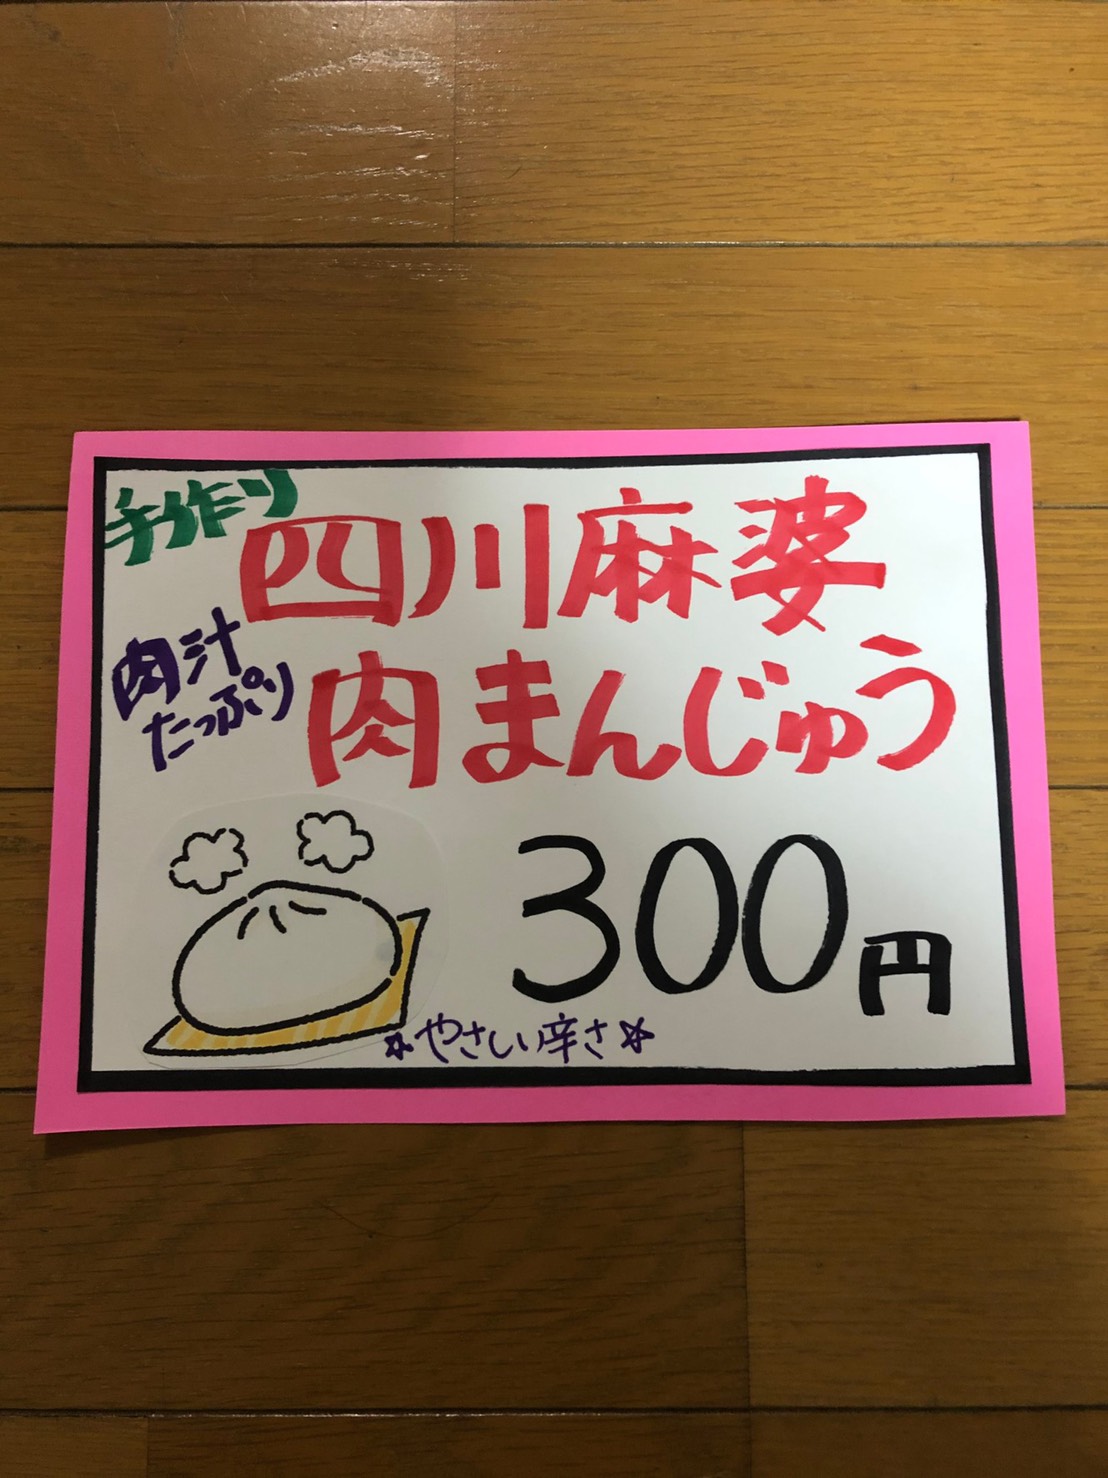 手作り
四川麻婆
肉汁
たっぷり
肉まんじゅう
300円
☆やさしい辛さ☆